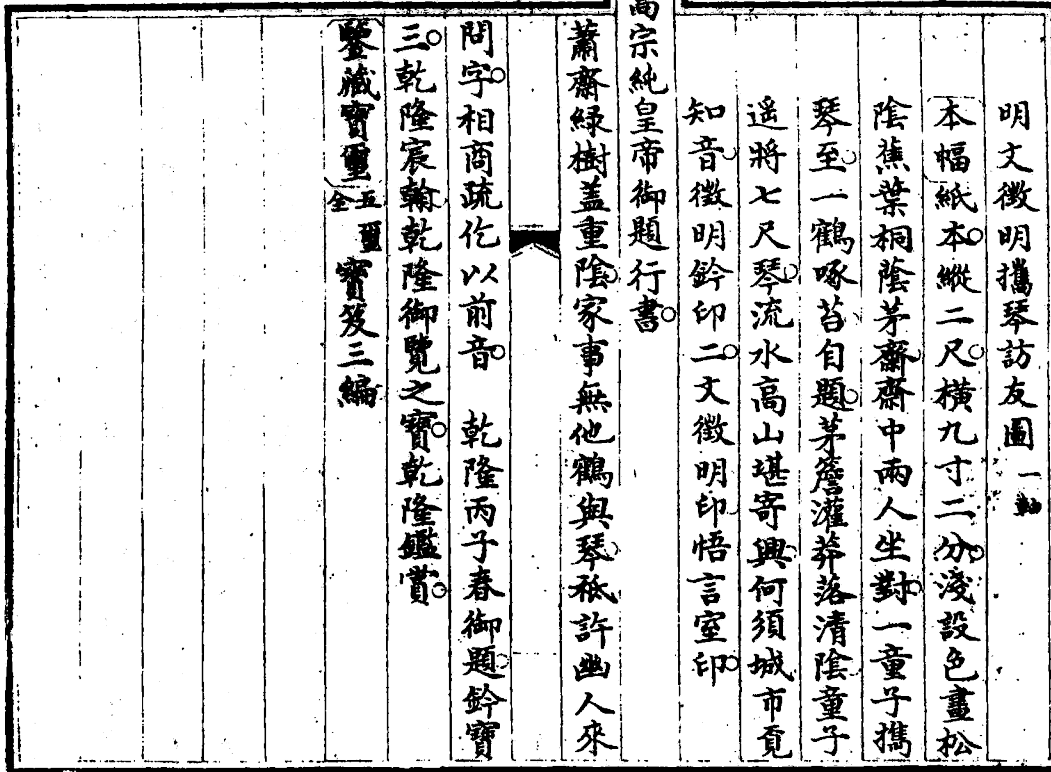 明文徵明攜琴訪友圖一軸
本幅紙本縱二尺橫九寸二分淺設色畫松
陰蕉葉桐蔭茅齋齋中兩人坐對一童子攜
琴至一鶴啄苔自題茅簷灌莽落清陰童子
遥將七尺琴流水高山堪寄興何須城市覔
知音徵明鈐印二文徵明印悟言室印
高宗純皇帝御題行書
蕭齋綠樹蓋重陰家事無他鶴與琴秪許幽人來
問字相商疏仡以前音　乾隆丙子春御題鈐寶
三乾隆宸翰乾隆御覽之寶乾隆鑑賞
鑒藏寶璽五璽全寶笈三編